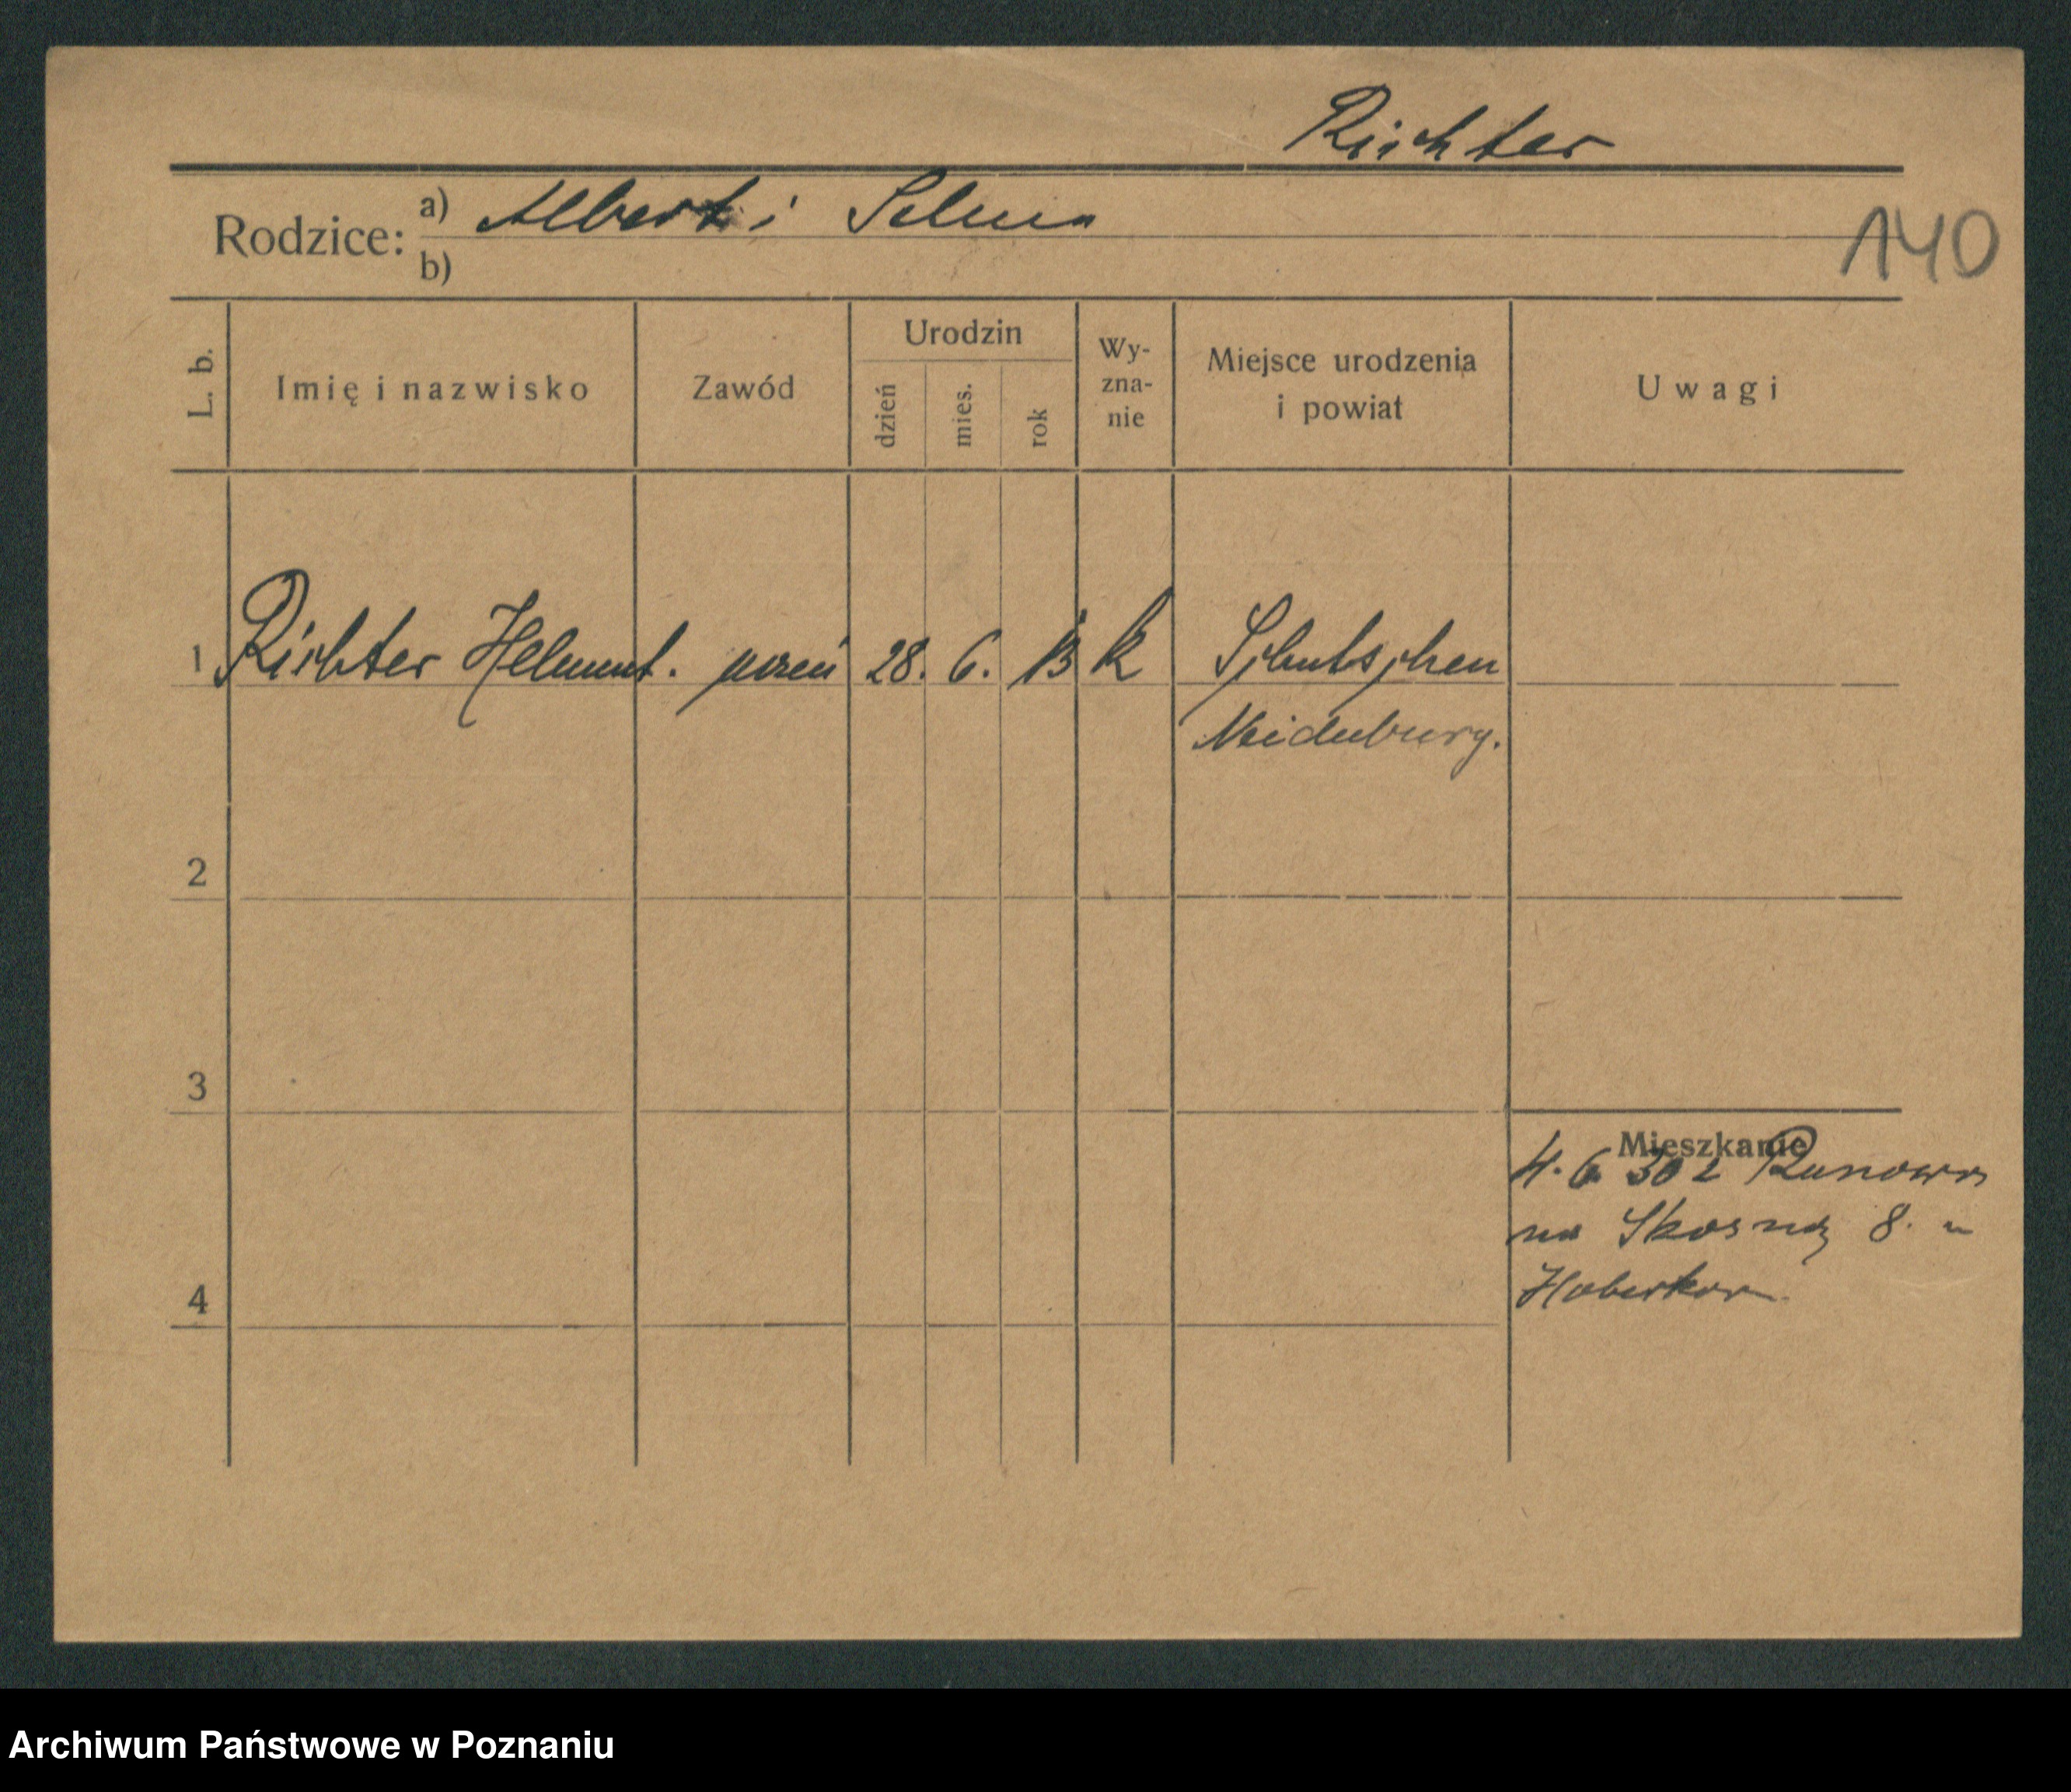 Richter
Rodzice: a) Albert i Selma
b)
140
L. b. Imię i nazwisko Zawód Urodzin dzień mies. rok Wy-zna-nie Miejsce urodzenia i powiat Uwagi
1 Richter Helmut. uczeń 28. 6. 13 k
Neidenburg.
2
3
Mieszkanie
4. 6. 30 z Runowa
na Skośną 8. u
4
Archiwum Państwowe w Poznaniu